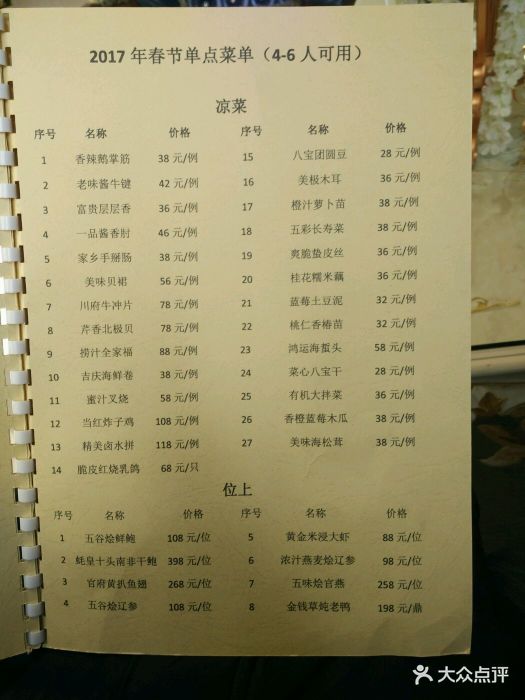 2017 年春节单点菜单（4-6 人可用）
凉菜
序号 名称 价格 名称 价格
1 香辣鹅掌筋 38 元/例 15 八宝团圆豆 28 元/例
2 老味酱牛键 42 元/例 16 美极木耳 36 元/例
3 富贵层层香 36 元/例 17 橙汁萝卜苗 38 元/例
4 一品酱香肘 46 元/例 18 五彩长寿菜 38 元/例
5 家乡手掰肠 38 元/例 19 爽脆蛰皮丝 36 元/例
6 美味贝裙 56 元/例 20 桂花糯米藕 36 元/例
7 川府牛冲片 78 元/例 21 蓝莓土豆泥 32 元/例
8 芹香北极贝 78 元/例 22 桃仁香椿苗 32 元/例
9 捞汁全家福 88 元/例 23 鸿运海蜇头 58 元/例
10 吉庆海鲜卷 38 元/例 24 菜心八宝干 28 元/例
11 蜜汁叉烧 58 元/例 25 有机大拌菜 36 元/例
12 当红炸子鸡 108 元/例 26 香橙蓝莓木瓜 38 元/例
13 精美卤水拼 118 元/例 27 美味海松茸 38 元/例
14 脆皮红烧乳鸽 68 元/只
位上
序号 名称 价格 序号 名称 价格
1 五谷烩鲜鲍 108 元/位 5 黄金米浸大虾 88 元/位
2 蚝皇十头南非干鲍 398 元/位 6 浓汁燕麦烩辽参 98 元/位
3 官府黄扒鱼翅 268 元/位 7 五味烩官燕 258 元/位
4 五谷烩辽参 108 元/位 8 金钱草炖老鸭 198 元/鼎
大众点评